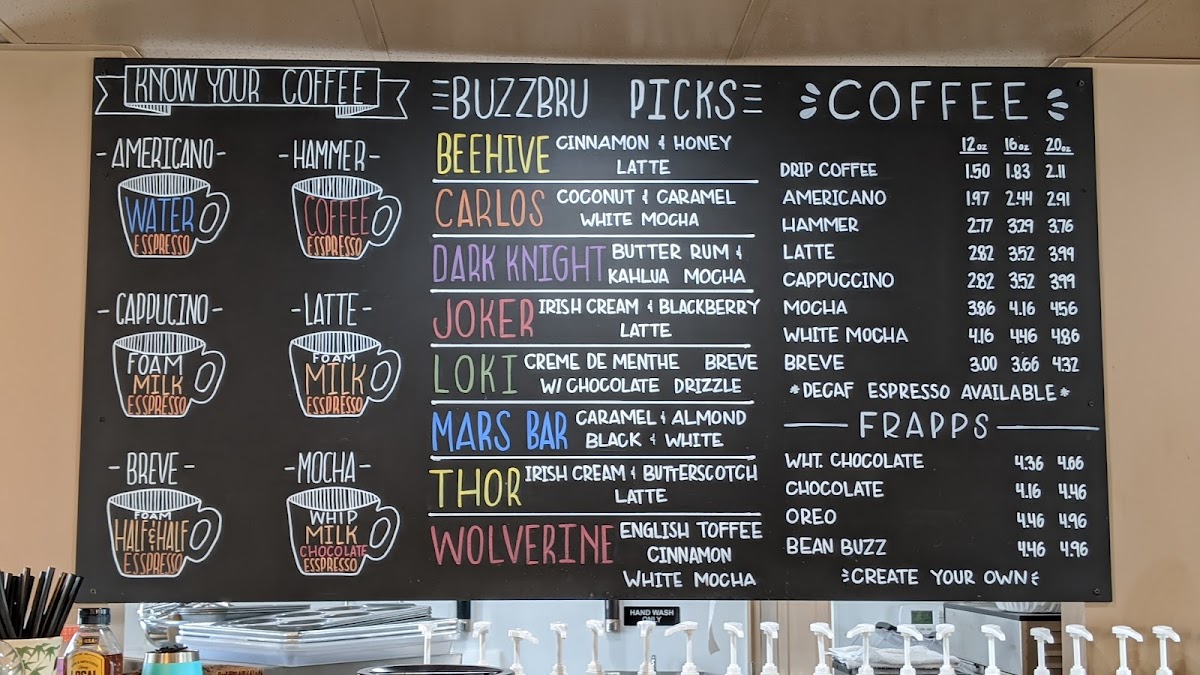 KNOW YOUR COFFEE
-AMERICANO-
WATER
ESSPRESSO
-HAMMER-
COFFEE
ESSPRESSO
-CAPPUCINO-
FOAM
MILK
ESSPRESSO
-LATTE-
FOAM
MILK
ESSPRESSO
-BREVE-
FOAM
HALF&HALF
ESSPRESSO
-MOCHA-
WHIP
MILK
CHOCOLATE
ESSPRESSO
BUZZBRU PICKS
BEEHIVE CINNAMON & HONEY
LATTE
CARLOS COCONUT & CARAMEL
WHITE MOCHA
DARK KNIGHT BUTTER RUM &
KAHLUA MOCHA
JOKER IRISH CREAM & BLACKBERRY
LATTE
LOKI CREME DE MENTHE BREVE
W/ CHOCOLATE DRIZZLE
MARS BAR CARAMEL & ALMOND
BLACK & WHITE
THOR IRISH CREAM & BUTTERSCOTCH
LATTE
WOLVERINE ENGLISH TOFFEE
CINNAMON
WHITE MOCHA
COFFEE
12oz 16oz 20oz
DRIP COFFEE 1.50 1.83 2.11
AMERICANO 1.97 2.44 2.91
HAMMER 2.77 3.29 3.76
LATTE 2.82 3.52 3.99
CAPPUCCINO 2.82 3.52 3.99
MOCHA 3.86 4.16 4.56
WHITE MOCHA 4.16 4.46 4.86
BREVE 3.00 3.66 4.32
*DECAF ESPRESSO AVAILABLE*
FRAPPS
WHT. CHOCOLATE 4.36 4.66
CHOCOLATE 4.16 4.46
OREO 4.46 4.96
BEAN BUZZ 4.46 4.96
CREATE YOUR OWN
HAND WASH
ONLY